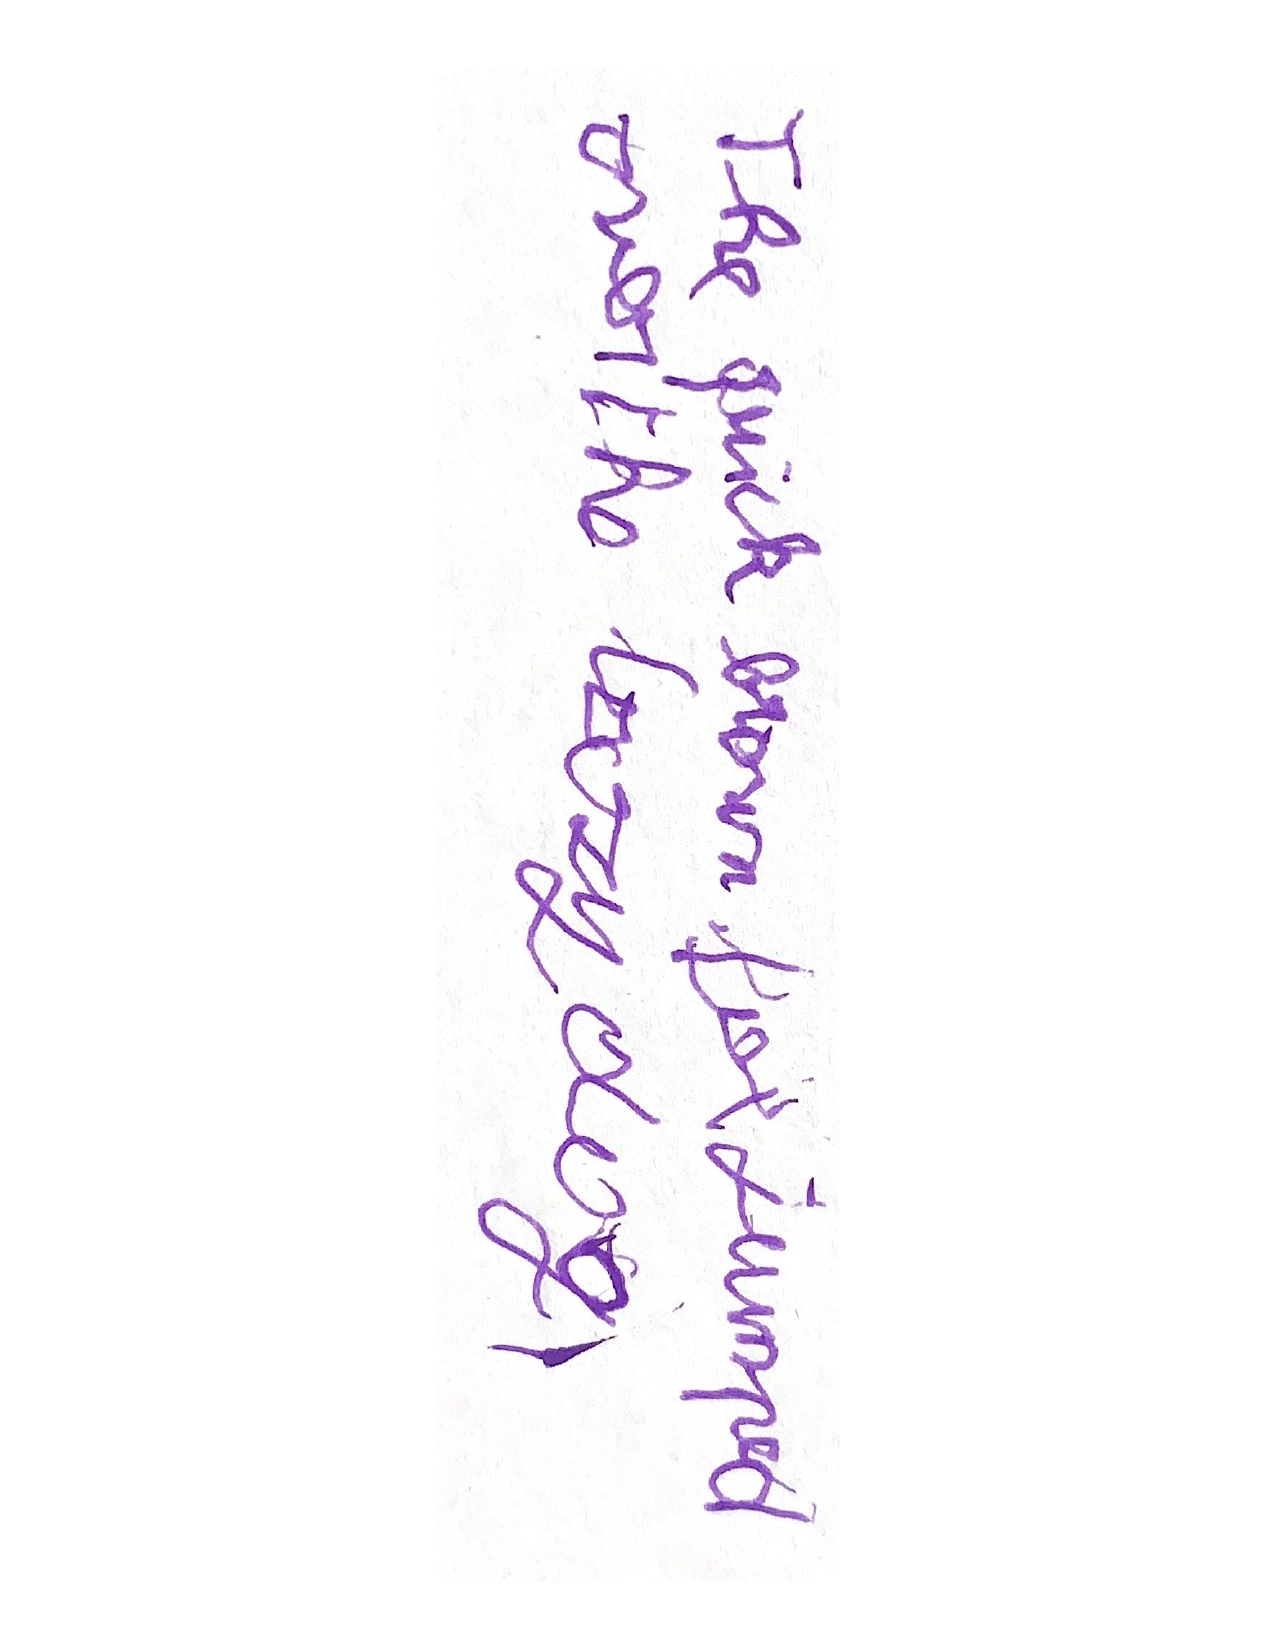 The quick brown fox jumped
over the lazy dog,